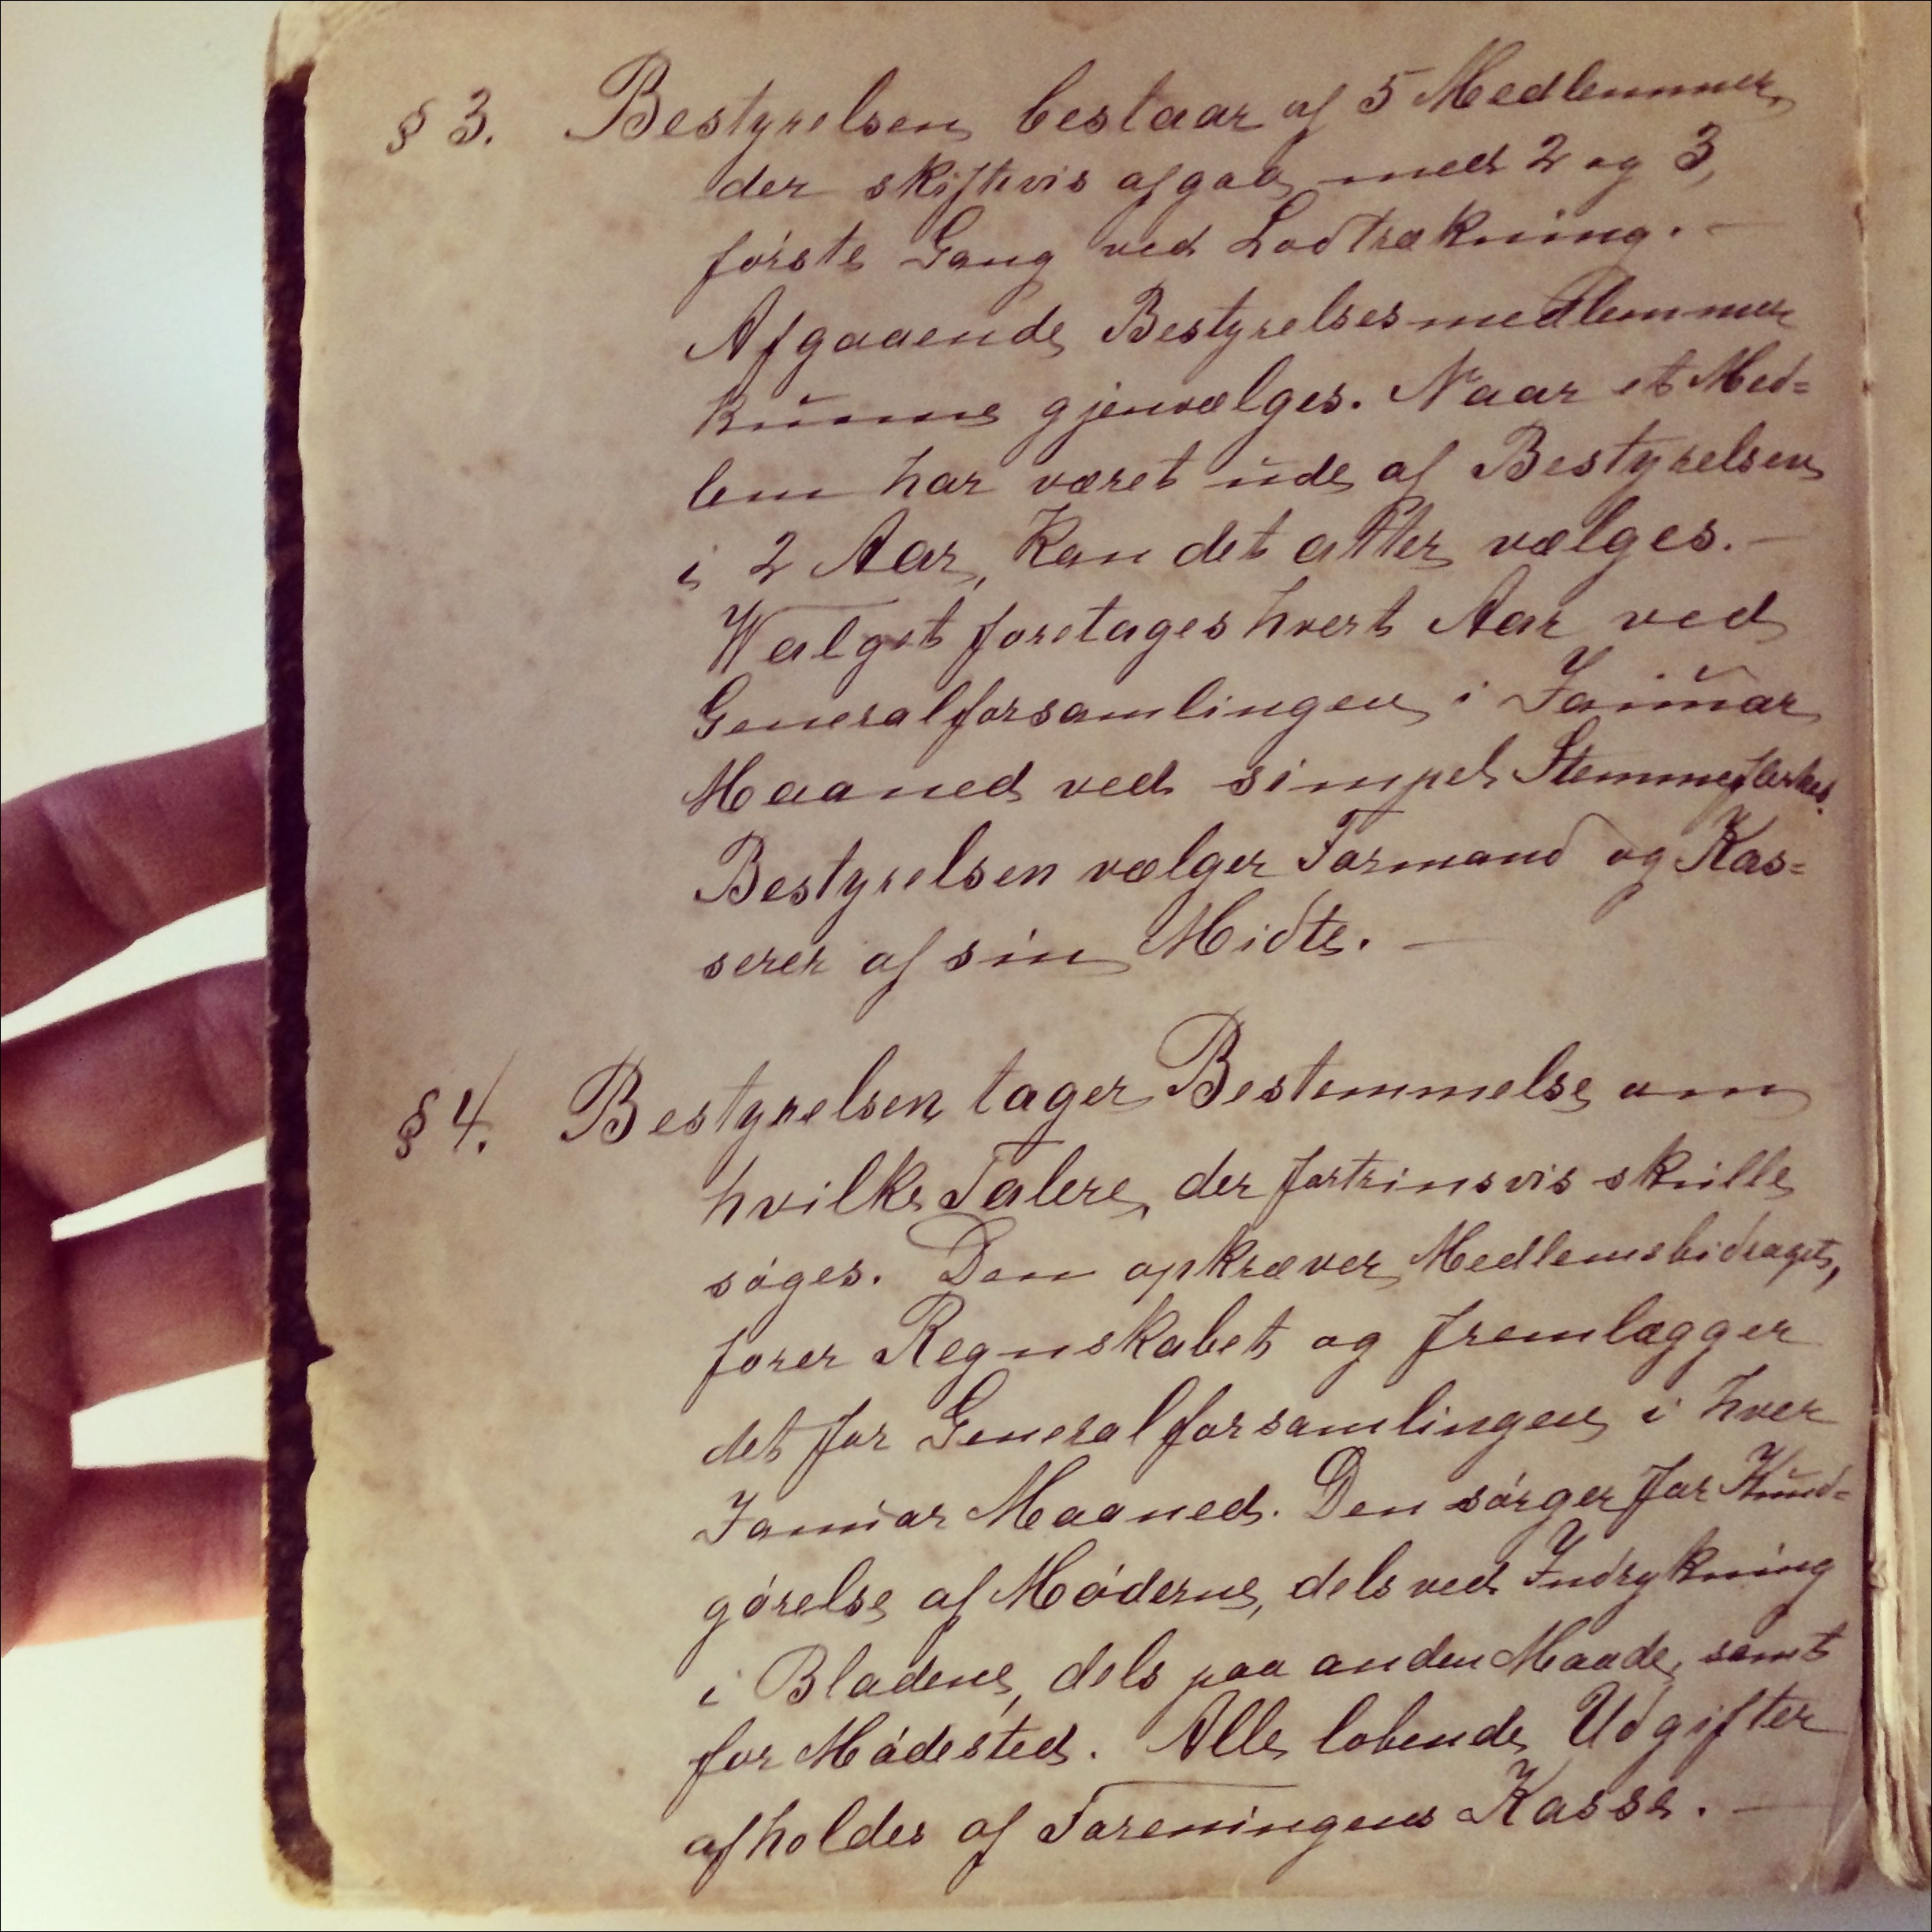 § 3. Bestyrelsen bestaar af 5 Medlemmer,
der skiftevis afgaa med 2 og 3,
første Gang ved Lodtrækning. —
Afgaaende Bestyrelsesmedlemmer
kunne gjenvælges. Naar et Med=
lem har været ude af Bestyrelsen
i 2 Aar, kan det atter vælges. —
Valget foretages hvert Aar ved
Generalforsamlingen i Januar
Maaned ved simpel Stemmeflerhed.
Bestyrelsen vælger Formand og Kas=
serer af sin Midte. —
§ 4. Bestyrelsen tager Bestemmelse om
hvilke Talere, der fortrinsvis skulle
søges. Den opkræver Medlemsbidraget,
fører Regnskabet og fremlægger
det for Generalforsamlingen i hver
Januar Maaned. Den sørger for Kund=
gørelse af Møderne, dels ved Indrykning
i Bladene, dels paa anden Maade, samt
for Mødested. Alle løbende Udgifter
afholdes af Foreningens Kasse. —